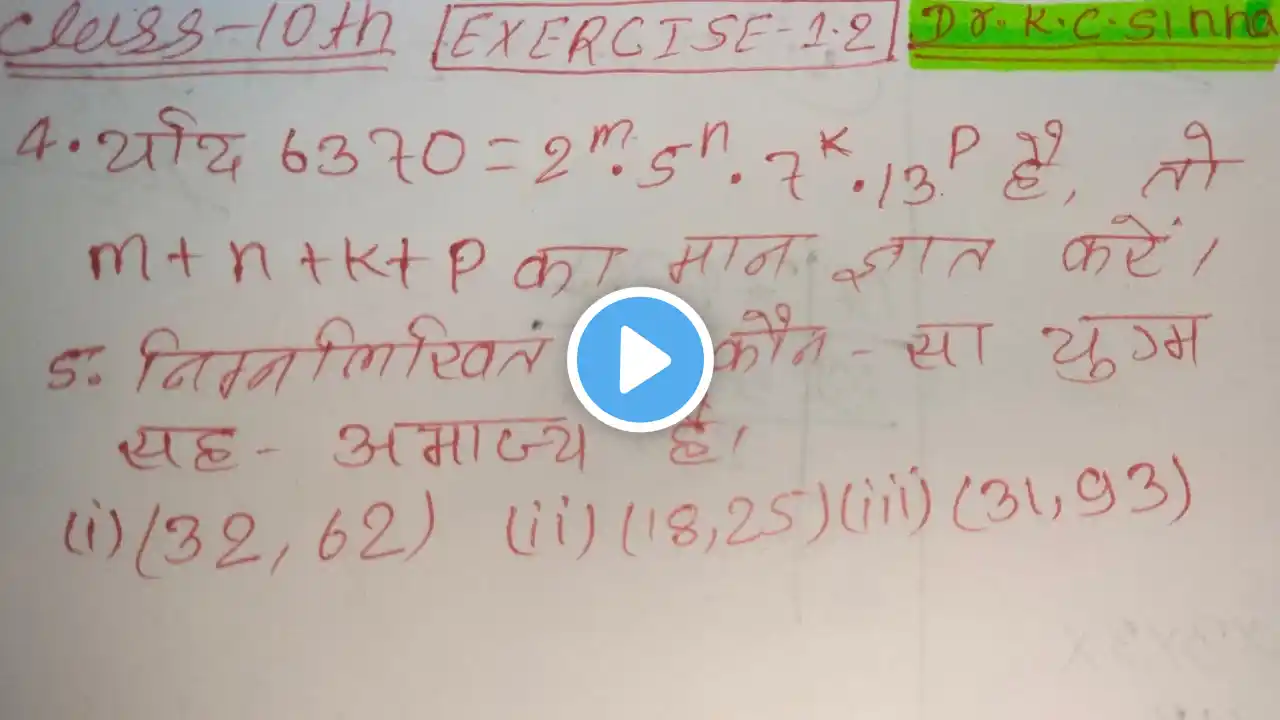 Class-10th EXERCISE-1.2 Dr.K.C.Sinha
4. यदि 6370 = 2^m . 5^n . 7^k . 13^p है, तो
m + n + k + p का मान ज्ञात करें।
5. निम्नलिखित कौन-सा युग्म
सह-अभाज्य है।
(i) (32, 62) (ii) (18, 25) (iii) (31, 93)